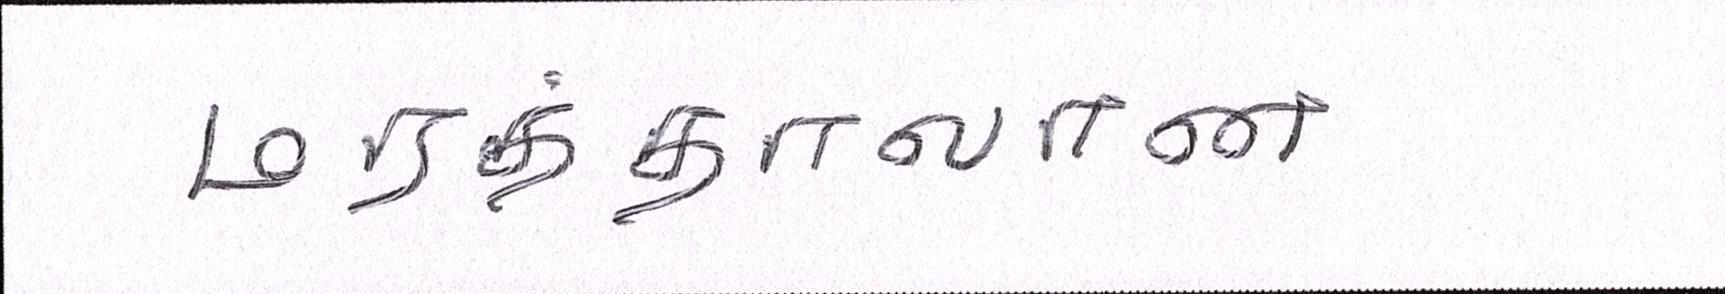 மரத்தாலான